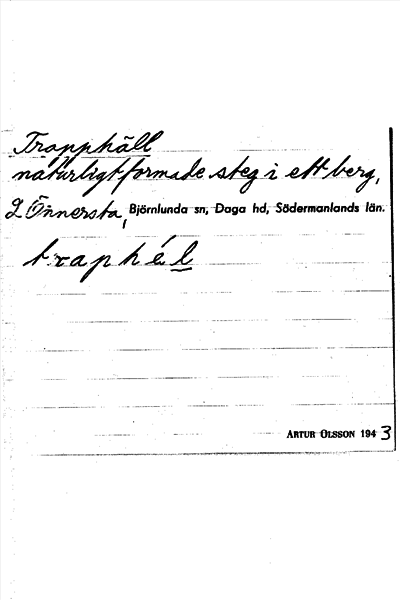 Trapphäll
naturligt formade steg i ett berg,
L Önnersta, Björnlunda sn, Daga hd, Södermanlands län.
traphél
ARTUR OLSSON 1943